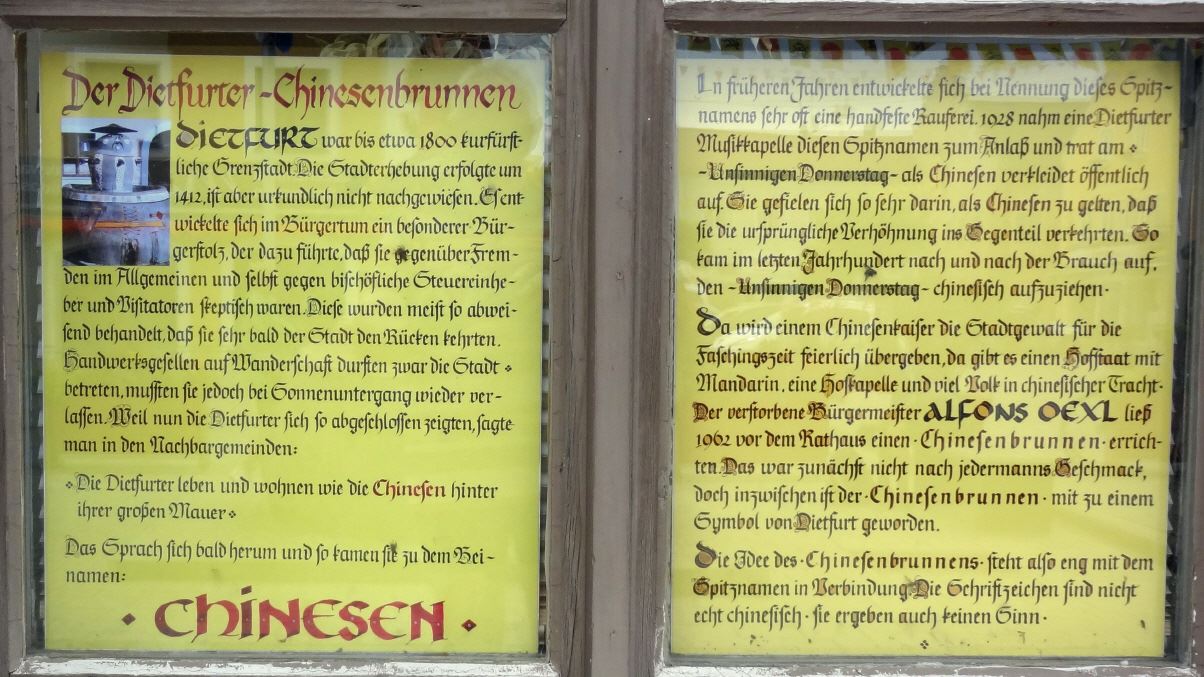 Der Dietfurter-Chinesenbrunnen
DIETFURT war bis etwa 1800 kurfürst-
liche Grenzstadt. Die Stadterhebung erfolgte um
1412, ist aber urkundlich nicht nachgewiesen. Es ent-
wickelte sich im Bürgertum ein besonderer Bür-
gerstolz, der dazu führte, daß sie gegenüber Frem-
den im Allgemeinen und selbst gegen bischöfliche Steuereinhe-
ber und Visitatoren skeptisch waren. Diese wurden meist so abwei-
send behandelt, daß sie sehr bald der Stadt den Rücken kehrten.
Handwerksgesellen auf Wanderschaft durften zwar die Stadt
betreten, mussten sie jedoch bei Sonnenuntergang wieder ver-
lassen. Weil nun die Dietfurter sich so abgeschlossen zeigten, sagte
man in den Nachbargemeinden:
Die Dietfurter leben und wohnen wie die Chinesen hinter
ihrer großen Mauer
Das Sprach sich bald herum und so kamen sie zu dem Bei-
namen:
· CHINESEN ·
In früheren Jahren entwickelte sich bei Nennung dieses Spitz-
namens sehr oft eine handfeste Rauferei. 1928 nahm eine Dietfurter
Musikkapelle diesen Spitznamen zum Anlaß und trat am
-Unsinnigen Donnerstag- als Chinesen verkleidet öffentlich
auf. Sie gefielen sich so sehr darin, als Chinesen zu gelten, daß
sie die ursprüngliche Verhöhnung ins Gegenteil verkehrten. So
kam im letzten Jahrhundert nach und nach der Brauch auf,
den -Unsinnigen Donnerstag- chinesisch aufzuziehen·
Da wird einem Chinesenkaiser die Stadtgewalt für die
Faschingszeit feierlich übergeben, da gibt es einen Hofstaat mit
Mandarin, eine Hofkapelle und viel Volk in chinesischer Tracht·
Der verstorbene Bürgermeister ALFONS OEXL ließ
1962 vor dem Rathaus einen · Chinesenbrunnen · errich-
ten. Das war zunächst nicht nach jedermanns Geschmack,
doch inzwischen ist der · Chinesenbrunnen · mit zu einem
Symbol von Dietfurt geworden.
Die Idee des · Chinesenbrunnens · steht also eng mit dem
Spitznamen in Verbindung. Die Schriftzeichen sind nicht
echt chinesisch · sie ergeben auch keinen Sinn ·